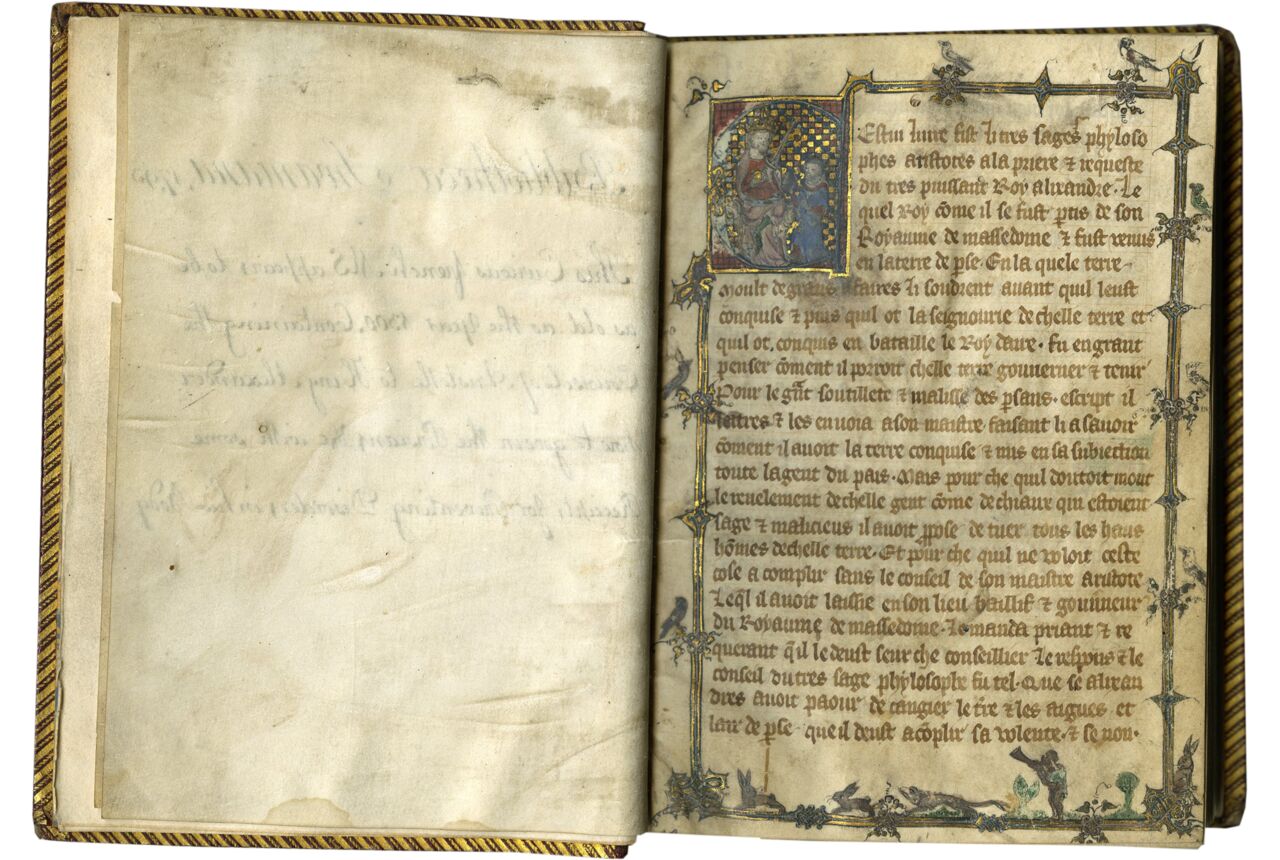 This Curious french MS appears to be
as old as the Year 1300, Containing the
of Aristotle to King Alexander
how to govern the Persians &c with some
Receipts for Preventing Disorders in his Body
CEstui liure fist li tres sages phyloso
phes aristotes a la priere ⁊ requeste
du tres puissant Roy alixandre. Le
quel Roy cōme il se fust ptis de son
Royaume de massedoine ⁊ fust venus
en la terre de pse. En la quele terre
moult de grans afaires li sourdrent auant quil leust
conquise ⁊ puis quil ot la seignourie de chelle terre et
quil ot conquis en bataille le Roy daire. fu en grant
penser cōment il porroit chelle terre gouuerner ⁊ tenir
Pour le gñt soutillete ⁊ malisse des psans. escript il
lettres ⁊ les enuoia a son maistre faisant li a sauoir
cōment il auoit la terre conquise ⁊ mis en sa subiection
toute la gent du pais. Mais pour che quil doutoit mout
le reuelement de chelle gent cōme de chiaux qui estoient
sage ⁊ malicieus il auoit ppose de tuer tous les haus
hōmes de chelle terre. Et pour che quil ne voloit ceste
cose a complir sans le conseil de son maistre aristote
Leql il auoit laissie en son lieu baillif ⁊ gouuneur
du Royaume de massedoine. Le manda priant ⁊ re
querant q̃il le deust seur che conseillier Le respons ⁊ le
conseil du tres sage phylosophe fu tel. Que se alixan
dres auoit paour de cangier le tr̃e ⁊ les aigues et
lair de pse que il deust acōplir sa volente. ⁊ se non.